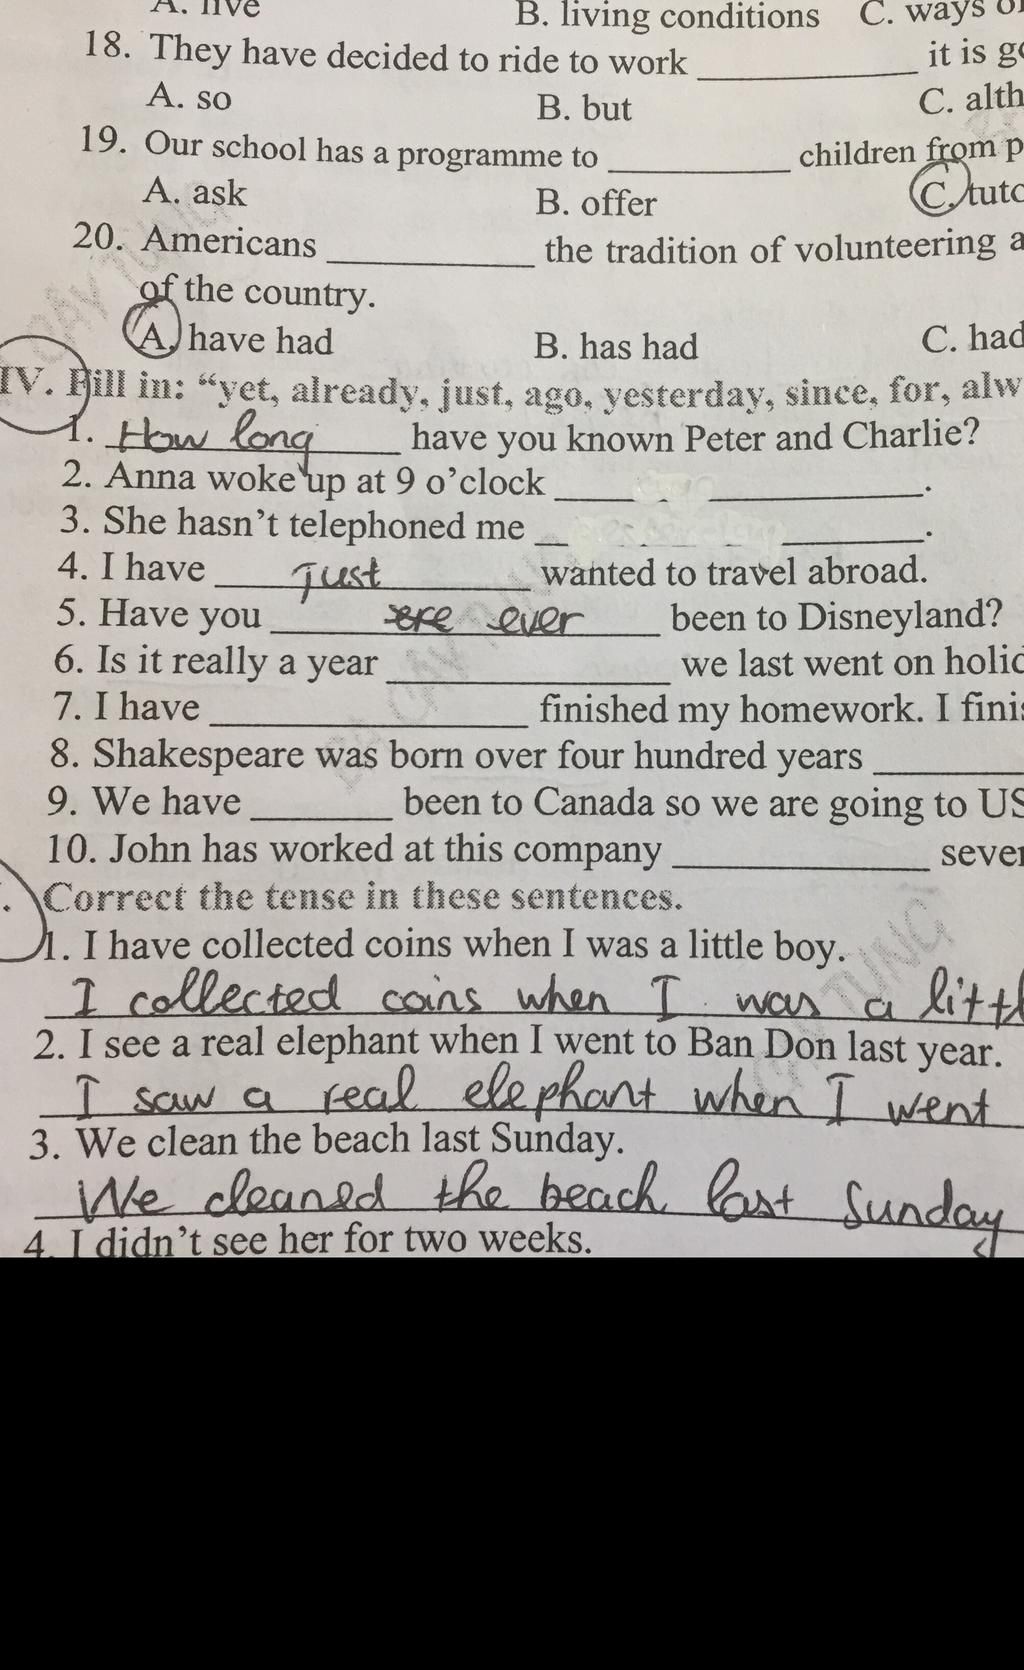 A. live B. living conditions C. ways of
18. They have decided to ride to work __________ it is go
A. so B. but C. alth
19. Our school has a programme to __________ children from p
A. ask B. offer C. tuto
20. Americans __________ the tradition of volunteering a
of the country.
A. have had B. has had C. had
IV. Fill in: “yet, already, just, ago, yesterday, since, for, alw
1. How long have you known Peter and Charlie?
2. Anna woke up at 9 o’clock __________.
3. She hasn’t telephoned me __________.
4. I have Just wanted to travel abroad.
5. Have you ever been to Disneyland?
6. Is it really a year __________ we last went on holid
7. I have __________ finished my homework. I finis
8. Shakespeare was born over four hundred years __________
9. We have __________ been to Canada so we are going to US
10. John has worked at this company __________ sever
. Correct the tense in these sentences.
1. I have collected coins when I was a little boy.
I collected coins when I was a littl
2. I see a real elephant when I went to Ban Don last year.
I saw a real elephant when I went
3. We clean the beach last Sunday.
We cleaned the beach last Sunday
4. I didn’t see her for two weeks.